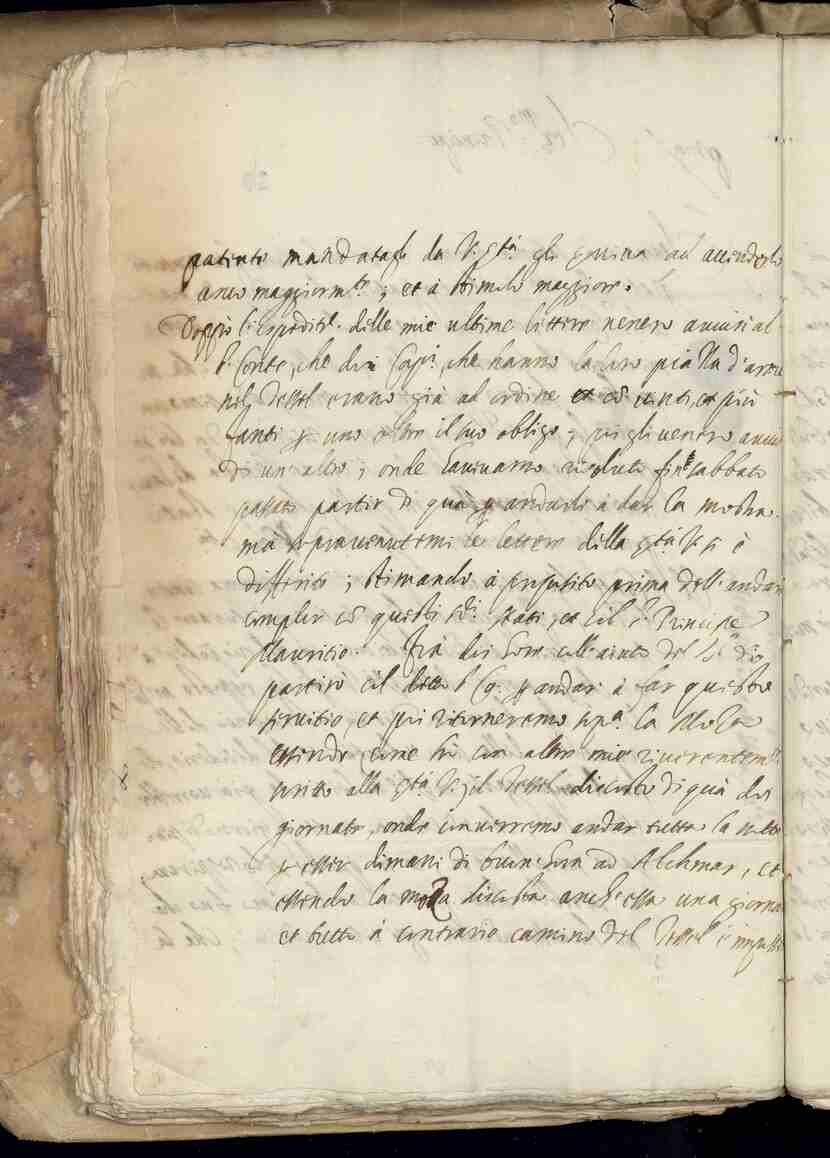 patente mandatagli da V. Stà gli servirà ad accenderlo
anco maggiorm.te; et à stimolo maggiore.
Doppò l'espedit.e delle mie ultime lettere venero avvisi al
s.r Conte, che doi Cap.i, che hanno la loro piazza d'arme
nel Tessel erano già ad ordine et cō cento, et più
fanti per uno oltre il suo obligo; poi gli venero avvisi
di un altro; onde havevamo risoluto sin sabbato
passato partir di quà per andarli à dar la mostra.
mà sopravenutemi le lettere della Stà V. si è
differito; stimando à proposito prima dell'andar
complir cō questi ss.ri stati, et col s.r Principe
Mauritio. Frà doi hore coll'aiuto del s.r Dio
partirò col detto s.r Co. per andar à far questo
servitio, et poi ritorneremo sop.a la Mosa
essendo, come hò con altre mie riverentem.te
scritto alla Stà V. il Tessel discosto di quà doi
giornate, onde converremo andar tutta la notte
per esser dimani di buon hora ad Alchmar, et
essendo la mosa discosta anch'essa una giornata
et tutto à contrario camino del Tessel è impossi